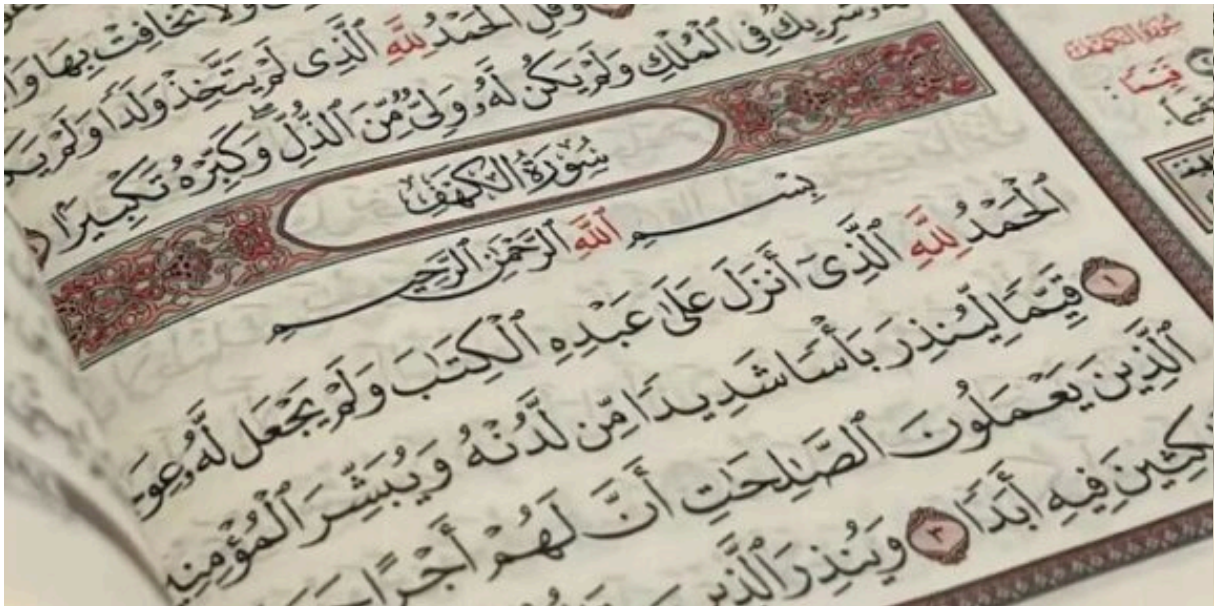 وَلَا تُخَافِتْ بِهَا
وَقُلِ ٱلْحَمْدُ لِلَّهِ ٱلَّذِى لَمْ يَتَّخِذْ وَلَدًا وَلَمْ
شَرِيكٌ فِى ٱلْمُلْكِ وَلَمْ يَكُن لَّهُۥ وَلِىٌّ مِّنَ ٱلذُّلِّ ۖ وَكَبِّرْهُ تَكْبِيرًۢا
سُورَةُ الْكَهْفِ
بِسْمِ ٱللَّهِ ٱلرَّحْمَٰنِ ٱلرَّحِيمِ
ٱلْحَمْدُ لِلَّهِ ٱلَّذِىٓ أَنزَلَ عَلَىٰ عَبْدِهِ ٱلْكِتَٰبَ وَلَمْ يَجْعَل لَّهُۥ
١ قَيِّمًا لِّيُنذِرَ بَأْسًا شَدِيدًا مِّن لَّدُنْهُ وَيُبَشِّرَ
ٱلَّذِينَ يَعْمَلُونَ ٱلصَّٰلِحَٰتِ أَنَّ لَهُمْ أَجْرًا
فِيهِ أَبَدًا ٣ وَيُنذِرَ ٱلَّذِينَ
سورة الكهف
قيما